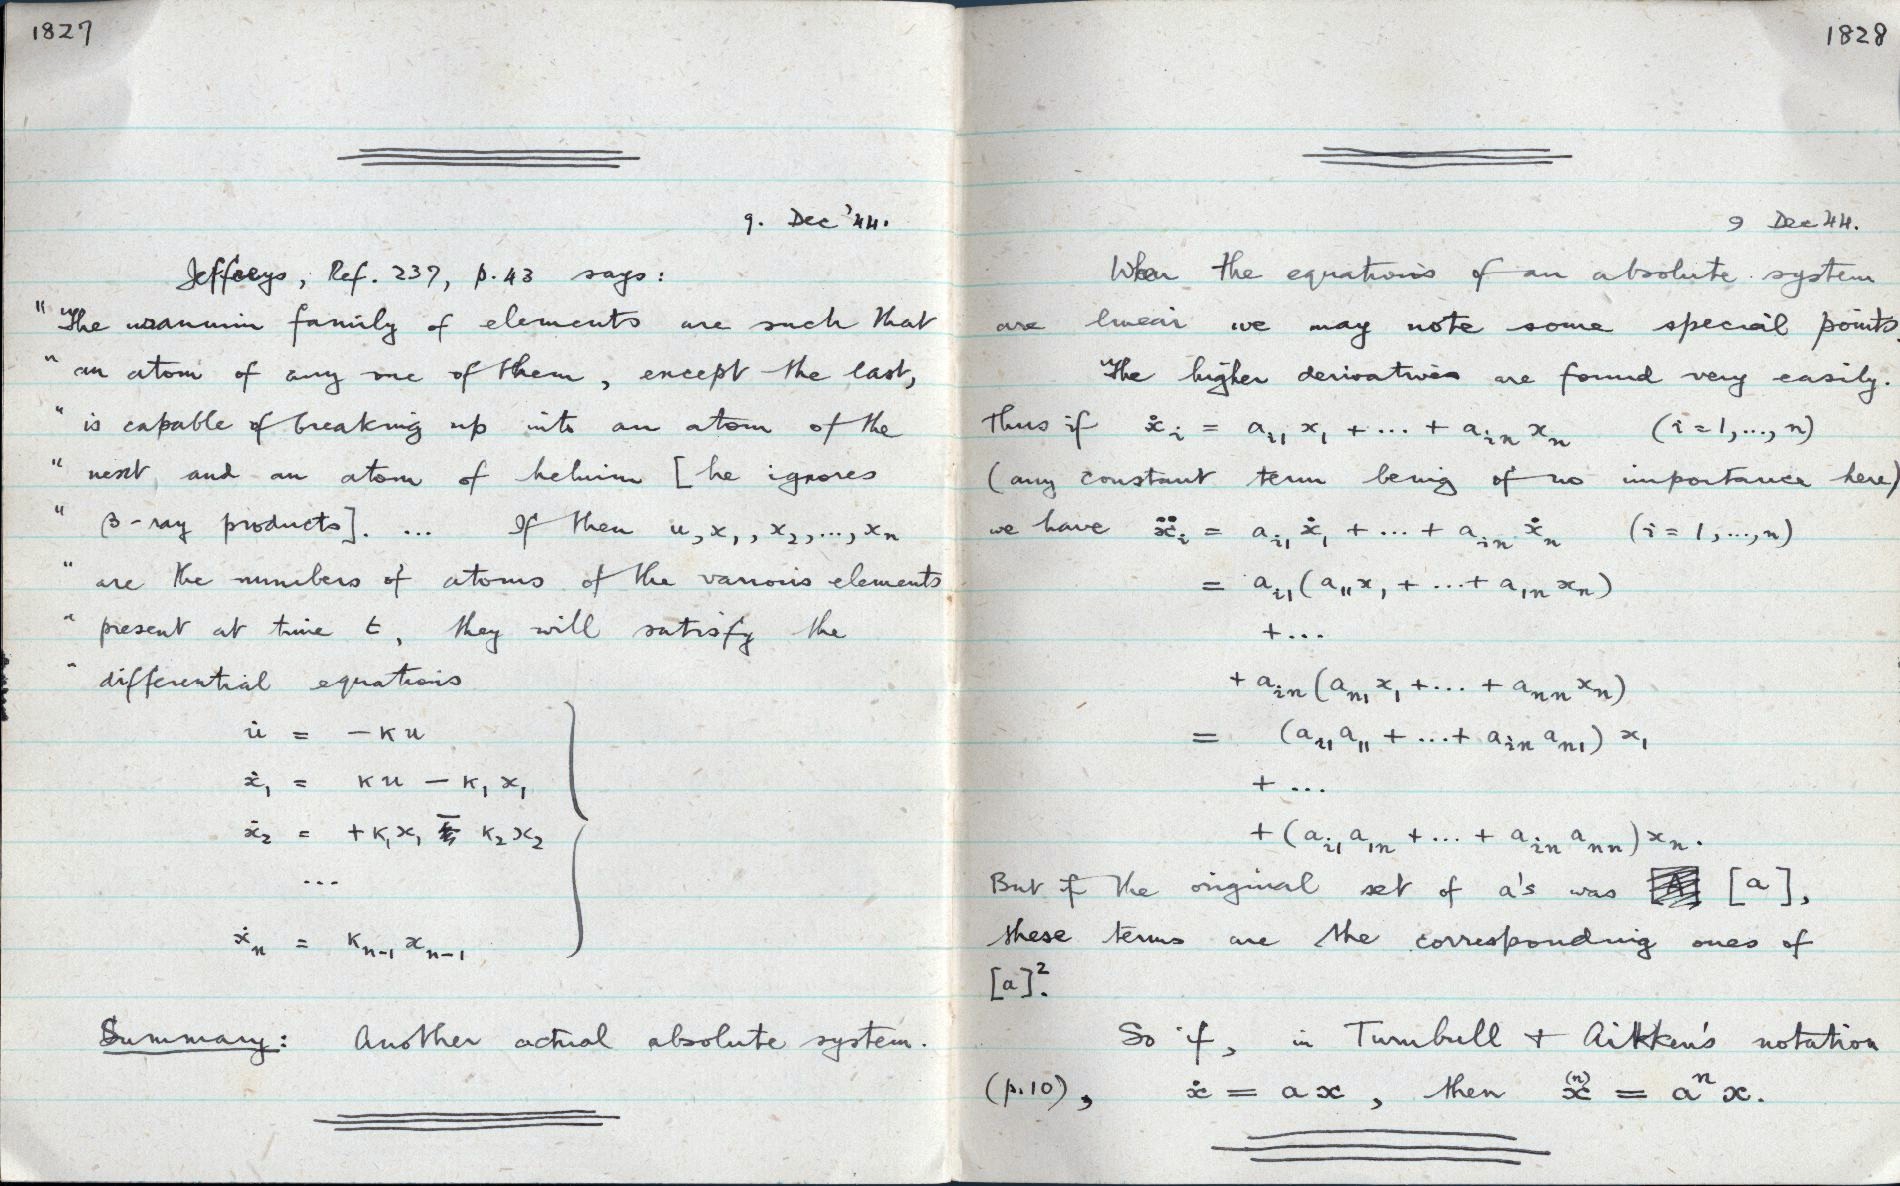 1827
9. Dec '44.
Jeffreys, Ref. 237, p. 43 says:
" The uranium family of elements are such that
" an atom of any one of them, except the last,
" is capable of breaking up into an atom of the
" next and an atom of helium [he ignores
" β-ray products]. ... If then u, x₁, x₂, ..., xₙ
" are the numbers of atoms of the various elements
" present at time t, they will satisfy the
" differential equations
u̇ = −κu
ẋ₁ = κu − κ₁x₁
ẋ₂ = +κ₁x₁ − κ₂x₂
...
ẋₙ = κₙ₋₁xₙ₋₁
Summary: Another actual absolute system.
1828
9 Dec 44.
When the equations of an absolute system
are linear we may note some special points.
The higher derivatives are found very easily.
Thus if ẋᵢ = aᵢ₁x₁ + ... + aᵢₙxₙ (i = 1, ..., n)
(any constant term being of no importance here)
we have ẍᵢ = aᵢ₁ẋ₁ + ... + aᵢₙẋₙ (i = 1, ..., n)
= aᵢ₁(a₁₁x₁ + ... + a₁ₙxₙ)
+ ...
+ aᵢₙ(aₙ₁x₁ + ... + aₙₙxₙ)
= (aᵢ₁a₁₁ + ... + aᵢₙaₙ₁) x₁
+ ...
+ (aᵢ₁a₁ₙ + ... + aᵢₙaₙₙ)xₙ.
But if the original set of a's was [a],
these terms are the corresponding ones of
[a]².
So if, in Turnbull + Aitken's notation
(p.10), ẋ = ax, then x⁽ⁿ⁾ = aⁿx.